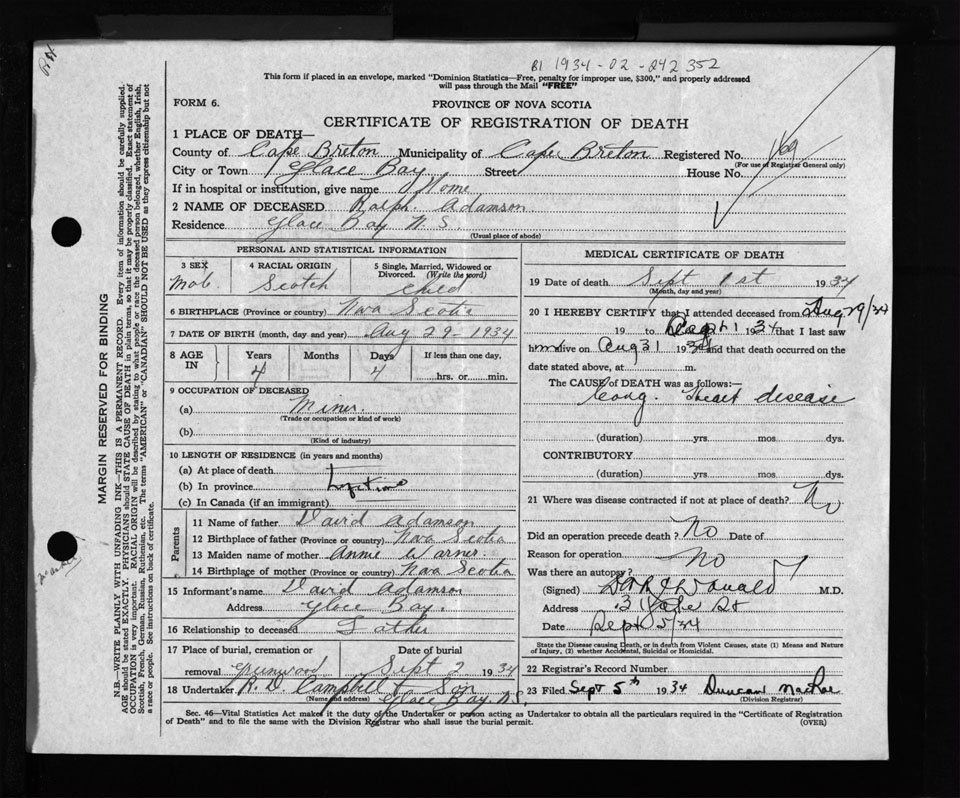 B1 1934-02-242352
This form if placed in an envelope, marked "Dominion Statistics—Free, penalty for improper use, $300," and properly addressed
will pass through the Mail "FREE"
FORM 6.
PROVINCE OF NOVA SCOTIA
CERTIFICATE OF REGISTRATION OF DEATH
1 PLACE OF DEATH—
County of Cape Breton Municipality of Cape Breton Registered No. 169
(For use of Registrar General only)
City or Town Glace Bay Street House No.
If in hospital or institution, give name Home
2 NAME OF DECEASED Ralph Adamson
Residence Glace Bay N.S.
(Usual place of abode)
PERSONAL AND STATISTICAL INFORMATION
3 SEX
4 RACIAL ORIGIN Scotch
5 Single, Married, Widowed or Divorced. (Write the word) Child
6 BIRTHPLACE (Province or country) Nova Scotia
7 DATE OF BIRTH (month, day and year) Aug 29-1934
8 AGE IN Years 4 Months Days 4 If less than one day, hrs. or min.
9 OCCUPATION OF DECEASED
(a) Miner
(Trade or occupation or kind of work)
(b)
(Kind of industry)
10 LENGTH OF RESIDENCE (in years and months)
(a) At place of death
(b) In province Lifetime
(c) In Canada (if an immigrant)
Parents
11 Name of father David Adamson
12 Birthplace of father (Province or country) Nova Scotia
13 Maiden name of mother Annie Warner
14 Birthplace of mother (Province or country) Nova Scotia
15 Informant's name David Adamson
Address Glace Bay.
16 Relationship to deceased Father
17 Place of burial, cremation or removal Greenwood Date of burial Sept 2 1934
18 Undertaker R. D. Campbell & Son
(Name and address) Glace Bay. N.S.
MEDICAL CERTIFICATE OF DEATH
19 Date of death Sept 1st 1934
(Month, day and year)
20 I HEREBY CERTIFY that I attended deceased from Aug 29/34
19 to Sept 1 1934 that I last saw
him alive on Aug 31 1934 and that death occurred on the
date stated above, at m.
The CAUSE of DEATH was as follows:—
Cong. Heart disease
(duration) yrs. mos. dys.
CONTRIBUTORY
(duration) yrs. mos. dys.
21 Where was disease contracted if not at place of death? No
Did an operation precede death? No Date of
Reason for operation
Was there an autopsy? No
(Signed) M.D.
Address St
Date Sept 5/34
State the Disease causing Death, or in death from Violent Causes, state (1) Means and Nature
of Injury, (2) whether Accidental, Suicidal or Homicidal.
22 Registrar's Record Number
23 Filed Sept 5th 1934 Duncan MacRae
(Division Registrar)
Sec. 46—Vital Statistics Act makes it the duty of the Undertaker or person acting as Undertaker to obtain all the particulars required in the "Certificate of Registration
of Death" and to file the same with the Division Registrar who shall issue the burial permit. (OVER)
MARGIN RESERVED FOR BINDING
N.B.—WRITE PLAINLY WITH UNFADING INK—THIS IS A PERMANENT RECORD. Every item of information should be carefully supplied.
AGE should be stated EXACTLY. PHYSICIANS should STATE CAUSE OF DEATH in plain terms, so that it may be properly classified. Exact statement of
OCCUPATION is very important. RACIAL ORIGIN will be described by stating to what people or race the deceased person belonged, whether English, Irish,
Scottish, French, German, Russian, Ruthenian, etc. The terms "AMERICAN" or "CANADIAN" SHOULD NOT BE USED as they express citizenship but not
a race or people. See instructions on back of certificate.